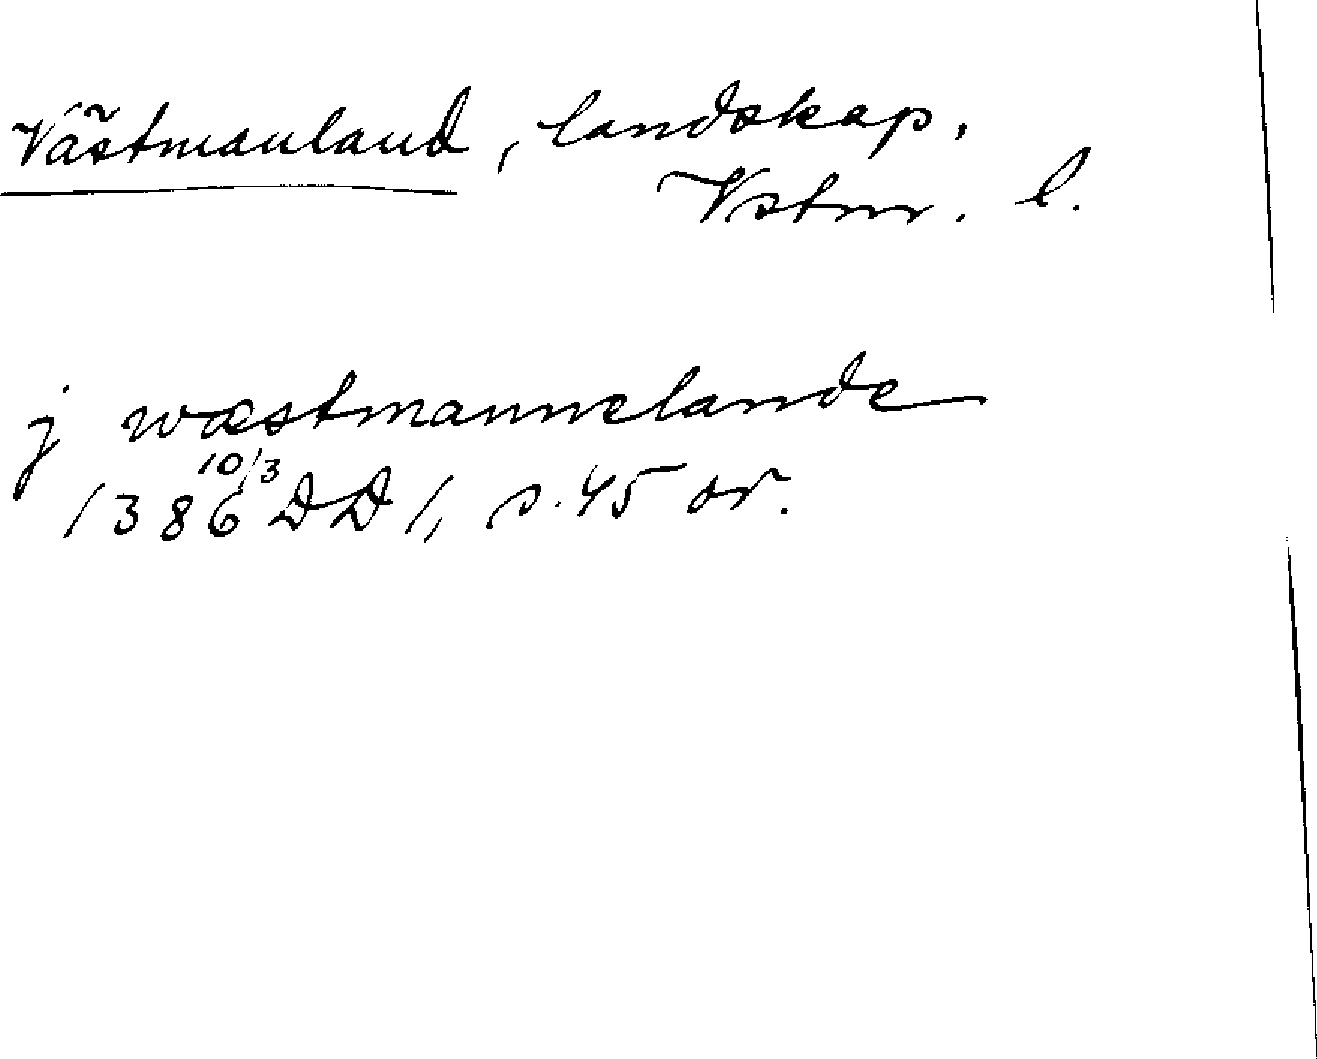 Västmanland, landskap,
Vstm. l.
j wæstmannelande
1386 10/3 DD 1, s. 45 or.